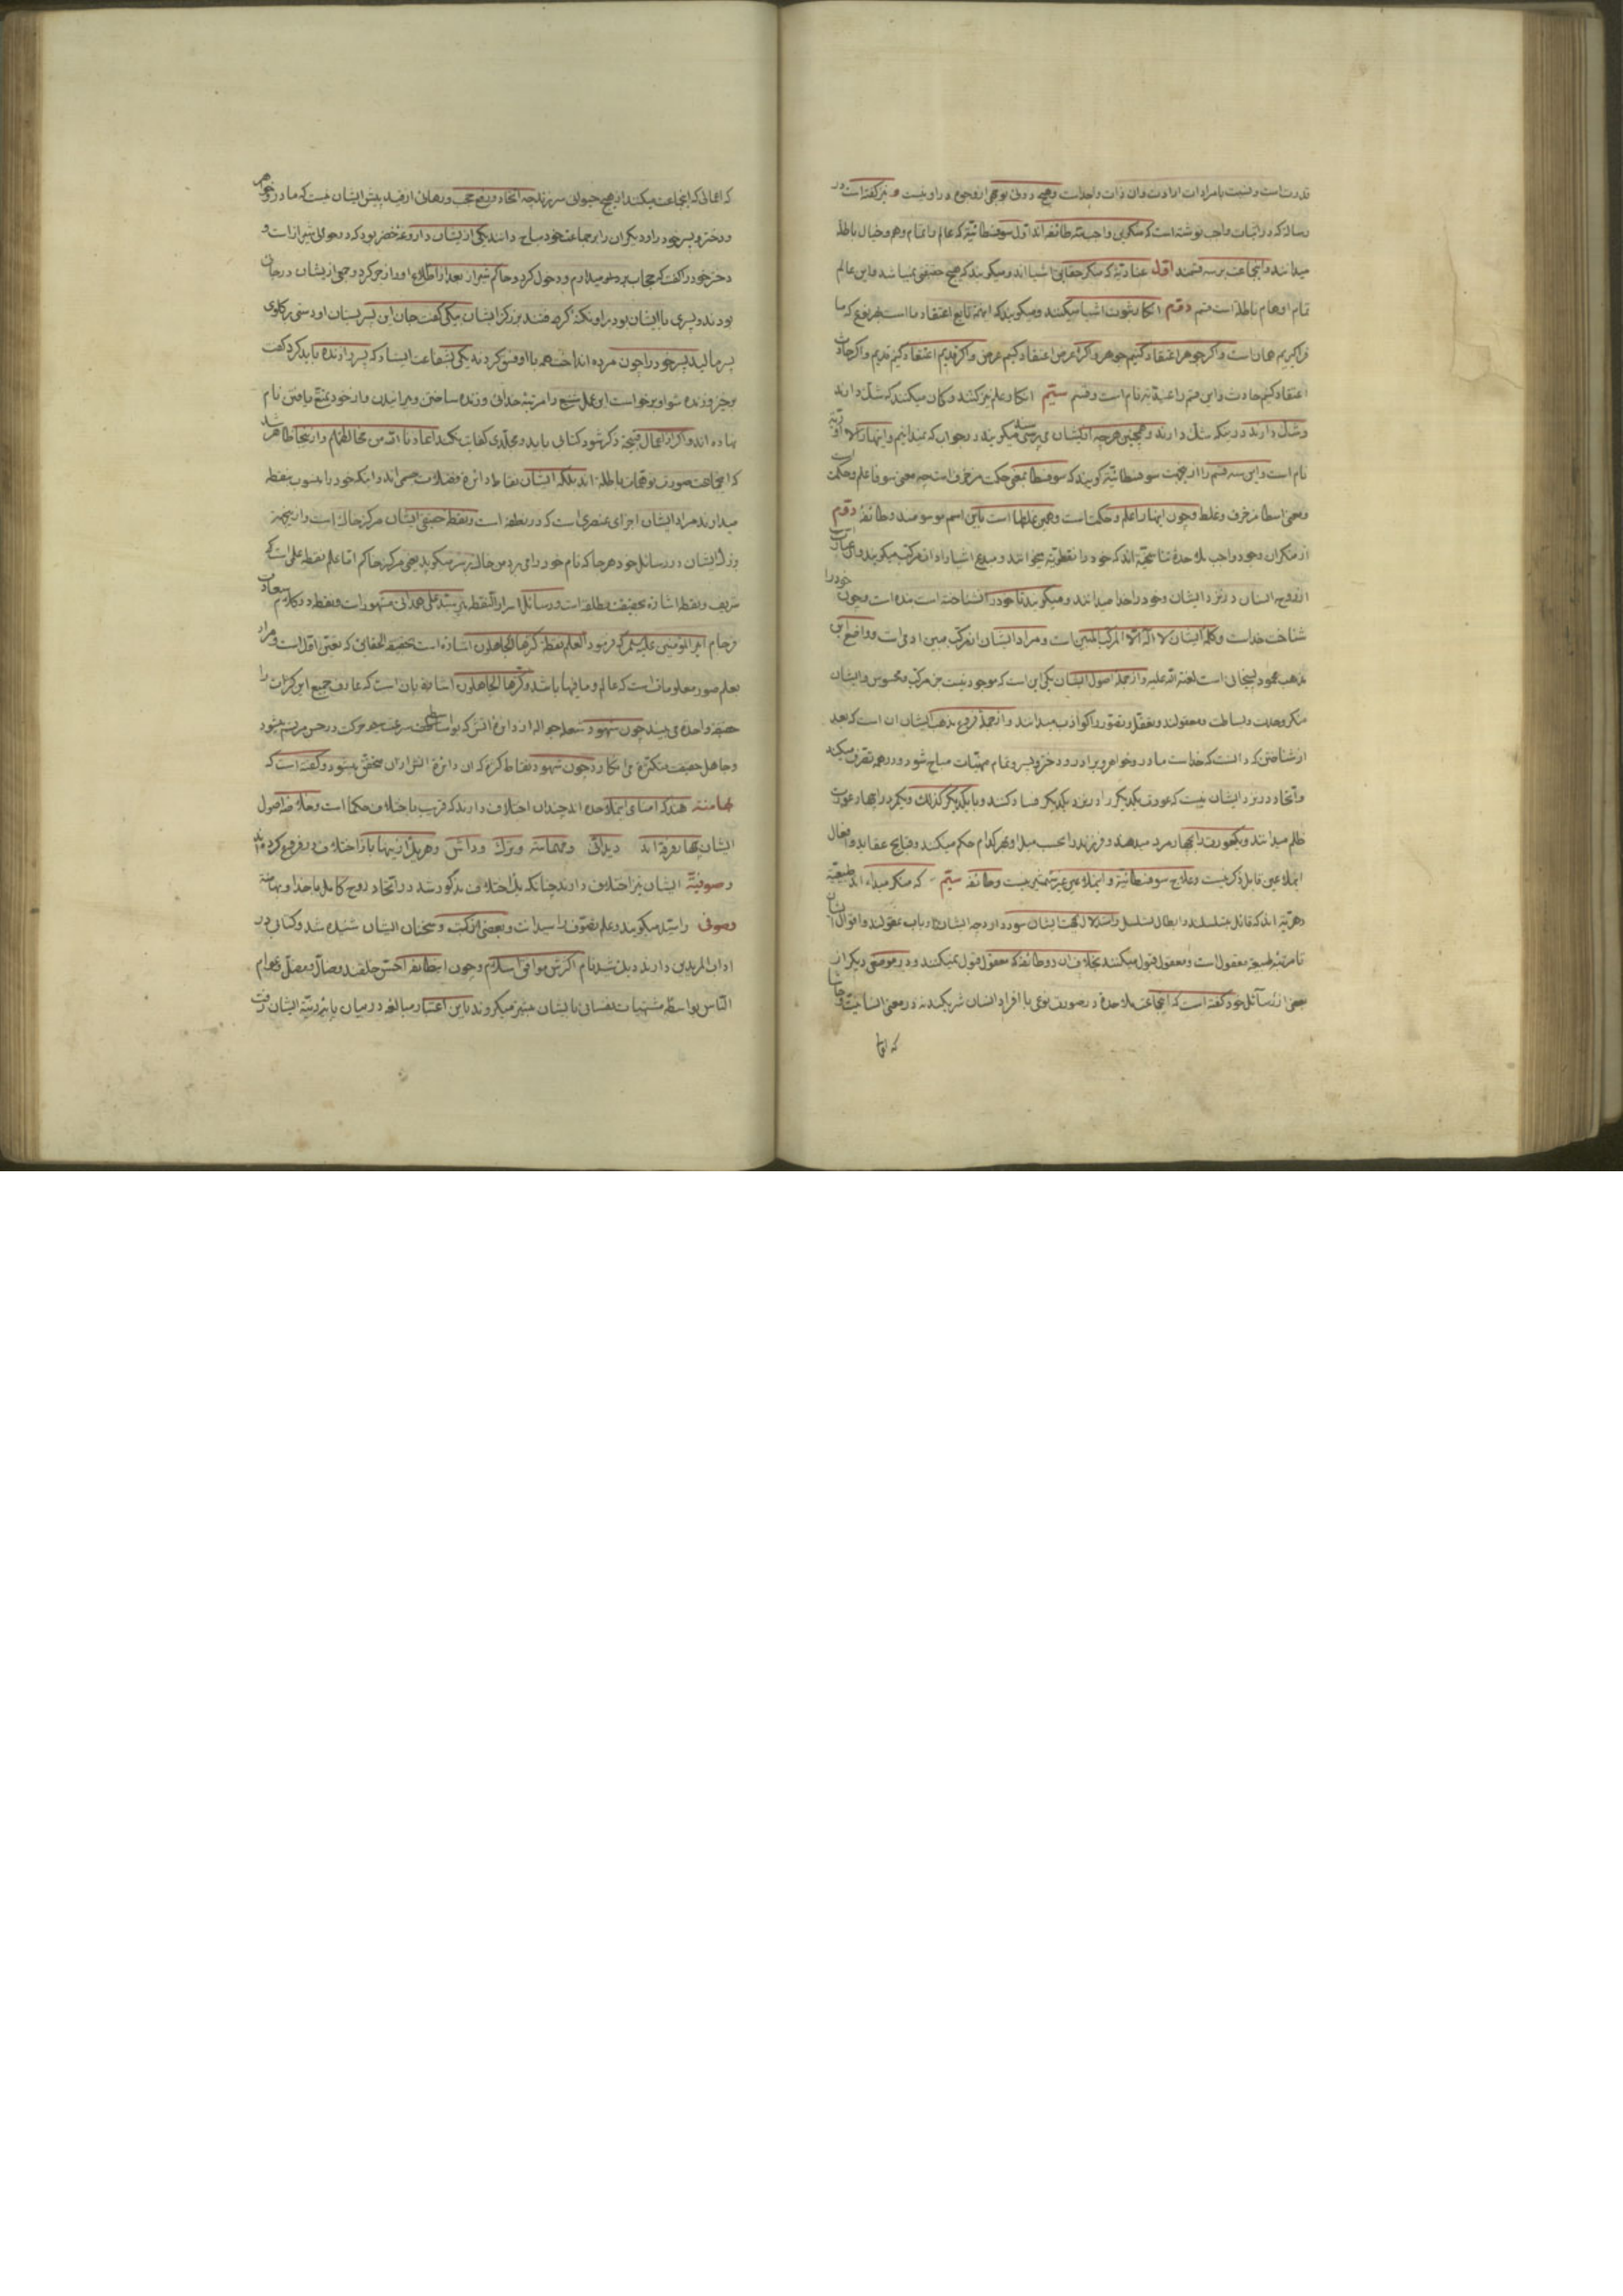 قدرت است و نسبت بامرادات ارادت و آن ذات واحد است و هیچ دوئی بوجهی از وجوه در او نیست و نیز گفته است در
رساله که در اثبات واجب نوشته است که منکرین واجب سه طائفه اند اول سوفسطائیه که عالم را تمام وهم و خیال باطل
میدانند و اینجماعت بر سه قسمند اول عنادیه که منکر حقایق اشیا اند و میگویند که هیچ حقیقتی نمیباشد و این عالم
تمام اوهام باطل است قسم دوم انکار ثبوت اشیا میکنند و میگویند که اینهمه تابع اعتقاد ما است
اگر جوهر اعتقاد کنیم جوهر و اگر عرض اعتقاد کنیم عرض و اگر قدیم اعتقاد کنیم قدیم و اگر حادث
اعتقاد کنیم حادث و این قسم را عندیه نام است و قسم سیم انکار علم نیز کنند و گمان میکنند که شک دارند
و شک دارند در اینکه شک دارند و همچنین هرچه از ایشان می پرسند میگویند در جواب که نمیدانیم و اینها را لا ادریه
نام است و این سه قسم را از اینجهت سوفسطائیه گویند که سوفسطا بمعنی حکمت مزخرف است چه معنی سوفا علم و حکمت است
و معنی اسطا مزخرف و غلط و چون اینها را علم و حکمت است و همین غلطها است باین اسم موسوم شدند و طائفه دوم
از منکران وجود واجب ملاحده تناسخیه اند که خود را نقطویه میخوانند و مبدع اشیا را ذات مرکب میگویند
انسان در نزد ایشان وجود را خدا میدانند و میگویند تا خود را نشناخته است بنده است و چون خود را
شناخت خداست و کلمه ایشان لا اله الا المرکب المبین است و مراد ایشان از مرکب مبین آدمی است و واضع این
مذهب محمود پسیخانی است لعنة الله علیه و از جمله اصول ایشان یکی این است که موجود نیست جز مرکب و محسوس و ایشان
منکر وحدت و بساطت و معقولند و تعقل و تصور را کواذب میدانند و از جمله فروع مذهب ایشان آن است که بعد
از شناختن که دانست که خداست مادر و خواهر و برادر و دختر و پسر و تمام مهیات مباح شود و در همه تصرف میکند
و اتحاد در نزد ایشان نیست که عورت یکدیگر را در نزد یکدیگر فساد کنند و با یکدیگر کذلک و یکمرد را بچهار عورت
ظلم میدانند و یکعورت را بچهار مرد میدهند و فرزند را بحسب مبدا و بهر کدام حکم میکنند و قبایح عقاید و افعال
این ملاعین قابل ذکر نیست و علاج سوفسطائیه و این ملاعین غیر شمشیر نیست و طائفه سیم که منکر مبداء اند طبیعیه
دهریه اند که قائل بتسلسلند و ابطال تسلسل و استدلال بجهت ایشان سود دارد چه ایشان در باب معقولند و اقوال ایشان
تا مرتبه طبیعه معقول است و معقول قبول میکنند بخلاف آن دو طائفه که معقول قبول نمیکنند و در موضعی دیگر از
بعضی از رسائل خود گفته است که اینجماعت ملاحده در صورت نوعی با افراد انسان شریکند نه در معنی انسانیت و حاشا
که افعا
که افعالی که اینجماعت میکنند از هیچ حیوانی سر نزند چه اتحاد و رفع حجب و رهائی از قید پیش ایشان نیست که مادر و خواهر
و دختر و پسر خود را و دیگران را بر جماعت خود مباح دانند یکی از ایشان داروغه خفر بود که در حوالی شیراز است و
دختر خود را گفت که حجاب برطرف میدارم و دخول کرد و حاکم شیراز بعد از اطلاع او را زجر کرد و جمعی از ایشان در جائی
بودند و پسری با ایشان بود
پسر مالید پسر خود را چون مرده انداخت همه با او فسق کردند یکی بشفاعت ایستاد که پسر را زنده باید کرد گفت
برخیز و زنده شو او برخواست این عمل شنیع را مرتبه خدائی و زنده ساختن و میرانیدن و از خود تمتع یافتن نام
نهاده اند و اگر از افعال قبیحه ذکر شود کتابی باید و مجلدی کفایت نکند اعاذنا الله من مخالطتهم و از اینجا ظاهر شد
که اینجماعت صورت توهمات باطله اند بلکه ایشان نقاط دائره فضلات جسمی اند و اینکه خود را منسوب بنقطه
میدارند مراد ایشان اجزای عنصری است که در نطفه است و نقطه حقیقی ایشان مرکز خاک است و از اینجهة
بزرگ ایشان در رسائل خود هرجا که نام خود را می برد من خاک میگوید یعنی مرکز خاکم اما علم نقطه علمی است که
شریف و نقطه اشاره بحقیقت مطلقه است و رساله اسرار النقطه میر سید علی همدانی مشهور است و نقطه در کلام سعادت
فرجام امیر المؤمنین علیه السلام که فرمود العلم نقطة کثرها الجاهلون اشاره است بحقیقة الحقائق که تعین اول است و مراد
بعلم صور معلومات است که عالم و مافیها باشد و کثرها الجاهلون اشاره بآن است که عارف جمیع این کثرات را
حقیقة واحده می بیند چون شهود شعله جواله از دائره آتش که بواسطه سرعت سیر حرکت در حس مرتسم میشود
و جاهل حقیقت متکثره می انگارد چون شهود نقاط کثیره که از آن دائره آتش از آن متحقق میشود و گفته است که
بهامنه هند که امنای این ملاحده اند چندان اختلاف دارند که قریب باختلاف حکما است و خلاصه اصول
ایشان چهار فرقه اند و هر یک از اینها باز اختلاف در فروع کرده اند
و صوفیّه ایشان نیز اختلاف دارند چنانکه یک اختلاف مذکور شد در اتحاد روح کامل با خدا و بهامنه
و صوفی را سید میگویند و علم تصوف را سیدانت و بعضی از کتب و سخنان ایشان شنیده شد و کتابی در
آداب المریدین دارند اکثرش موافق اسلام و چون این طائفه اخس خلقند و ضال و مضل و عوام
الناس بواسطه مشتهیات نفسانی بایشان منجر میگردند باین اعتبار مبالغه در میان